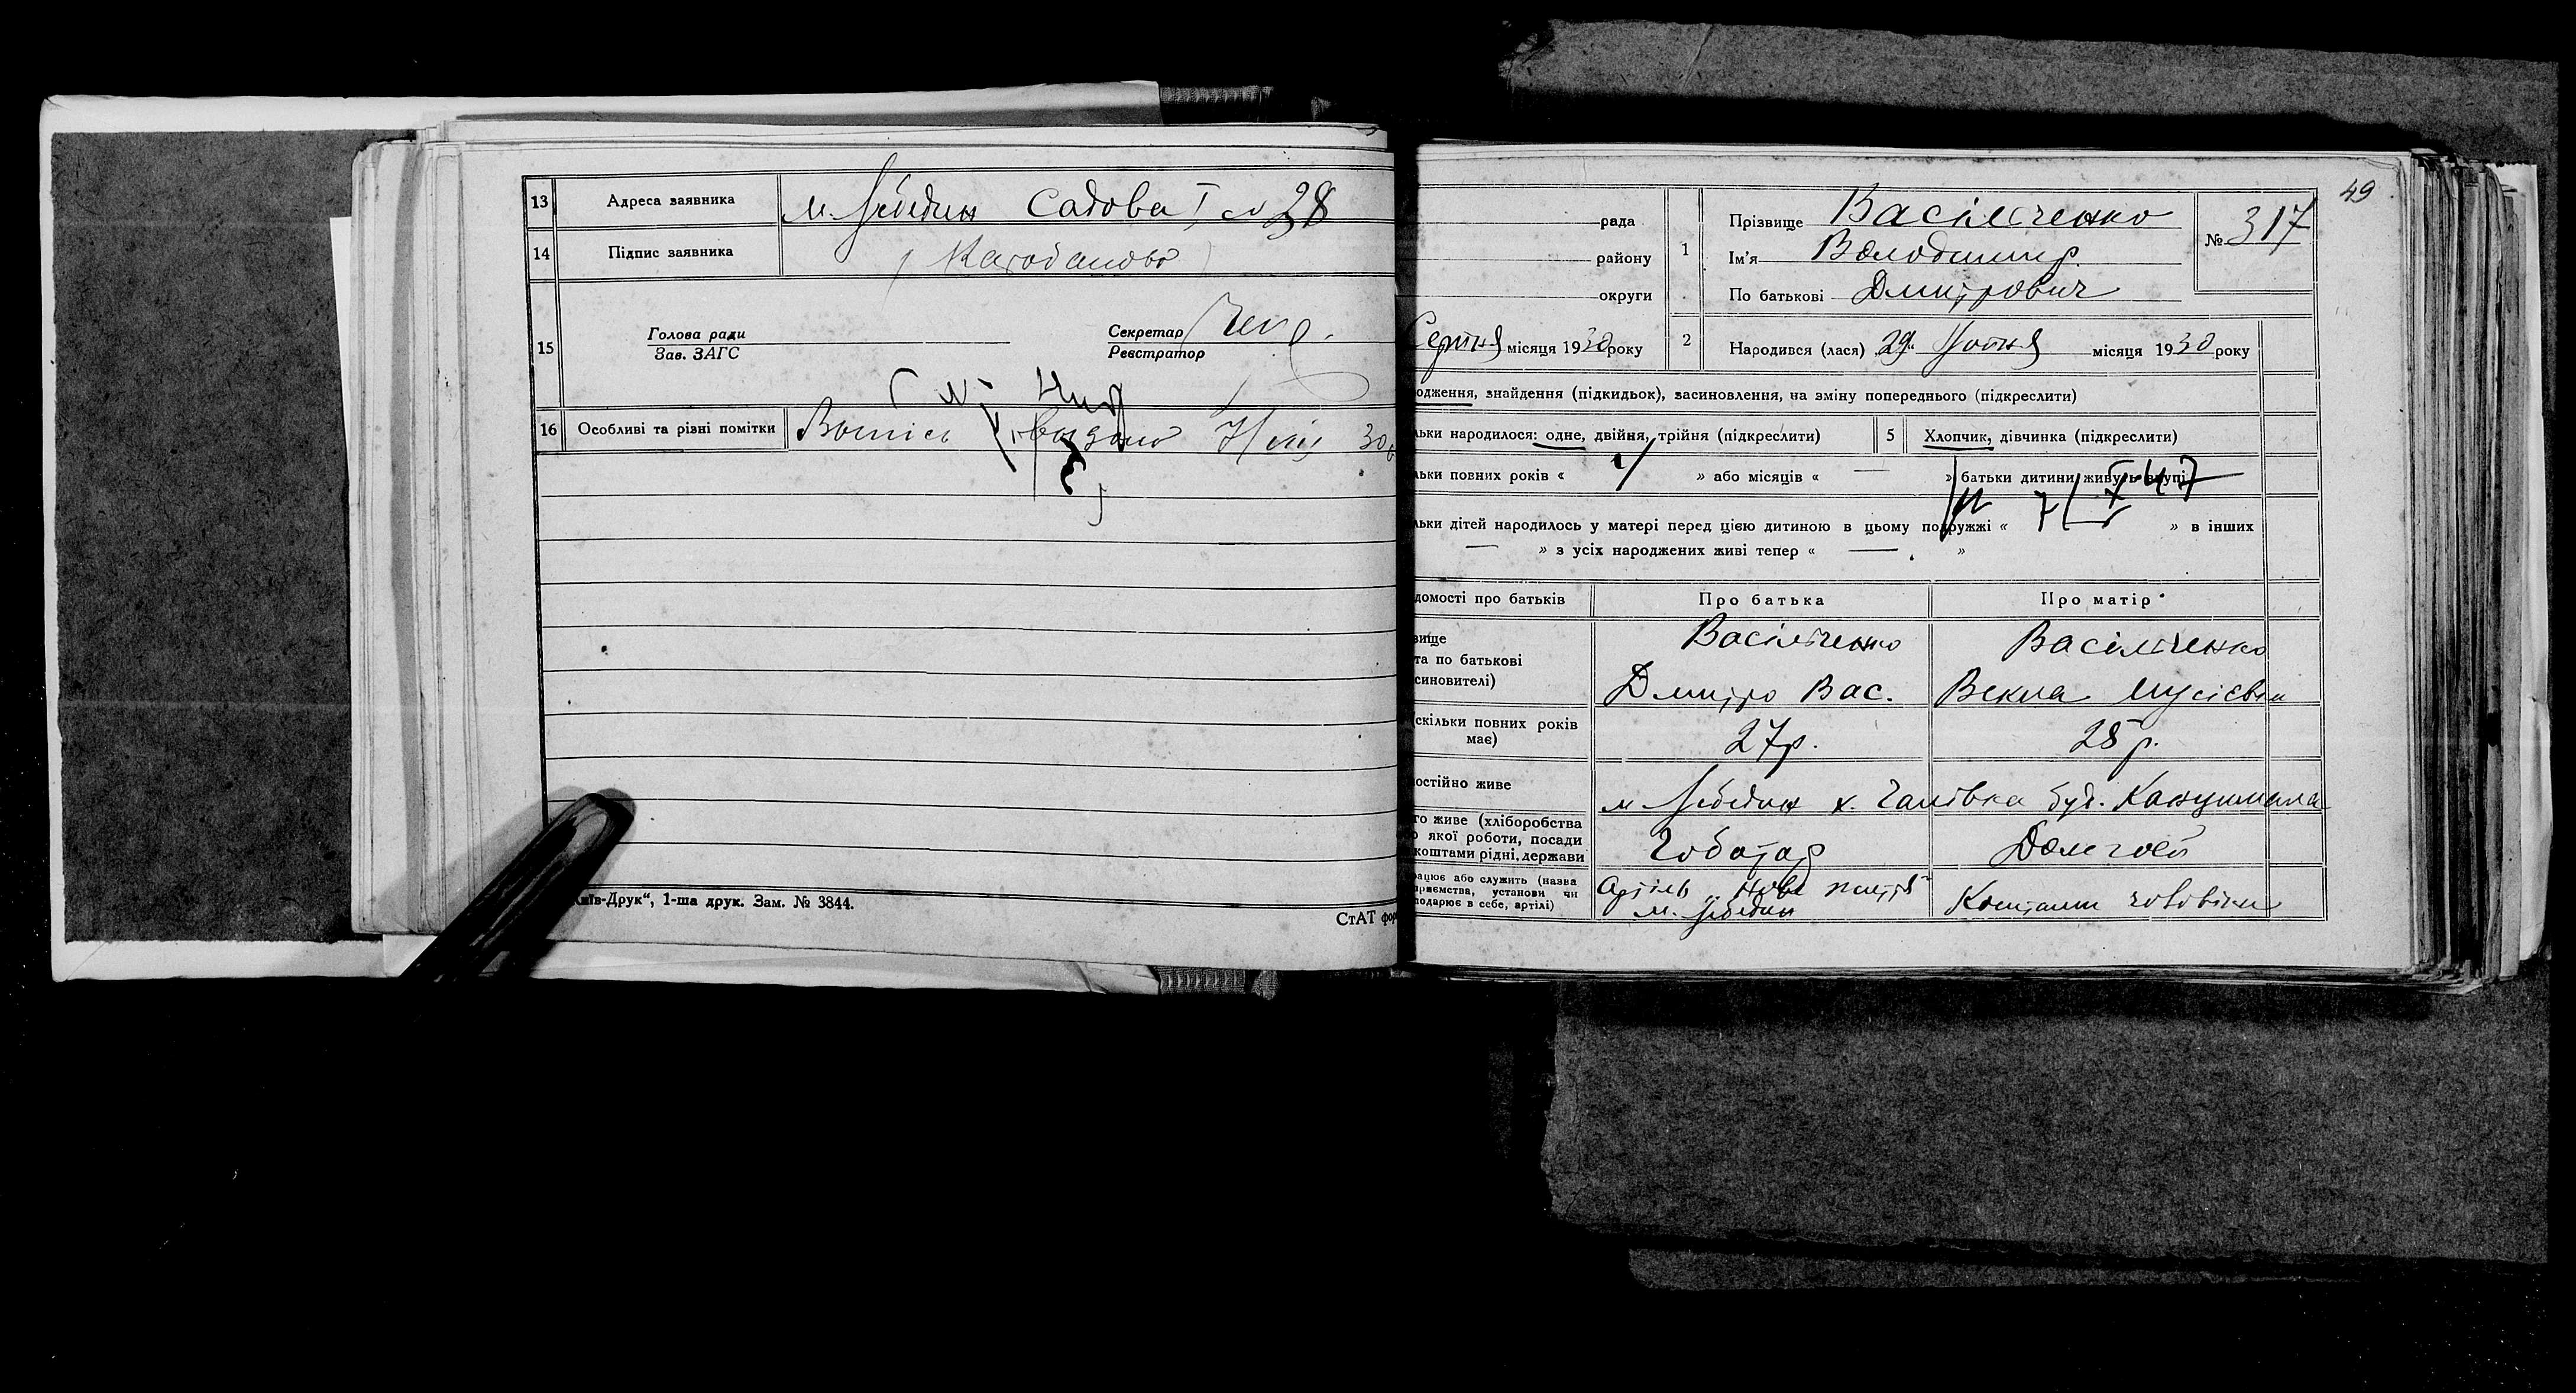 13 Адреса заявника м. Лебедин Садова I № 28
14 Підпис заявника
15 Голова ради
Зав. ЗАГС
Секретар
Реєстратор
16 Особливі та різні помітки
Київ-Друк“, 1-ша друк. Зам. № 3844.
СтАТ фор
49
рада
району
округи
Серпня місяця 1930 року
1 Прізвище Васільченко
Ім'я Володимир.
По батькові Дмитрович
№ 317
2 Народився (лася) „29“ Липня місяця 1930 року
одження, знайдення (підкидьок), засиновлення, на зміну попереднього (підкреслити)
льки народилося: одне, двійня, трійня (підкреслити) 5 Хлопчик, дівчинка (підкреслити)
льки повних років « » або місяців « — » батьки дитини живуть вкупі
льки дітей народилось у матері перед цією дитиною в цьому подружжі « » в інших
— » з усіх народжених живі тепер « — »
домості про батьків Про батька Про матір
вище
та по батькові
синовителі)
Васільченко
Дмитро Вас.
Васільченко
Векла Мусієвна
скільки повних років
має)
27 р. 28 р.
остійно живе м Лебедин х. буд.
го живе (хліборобства
о якої роботи, посади
коштами рідні, держави
Чоботар
рацює або служить (назва
приємства, установи чи
подарює в себе, артілі)
Артіль „Нове життя“
м. Лебедин
Коштами чоловіка